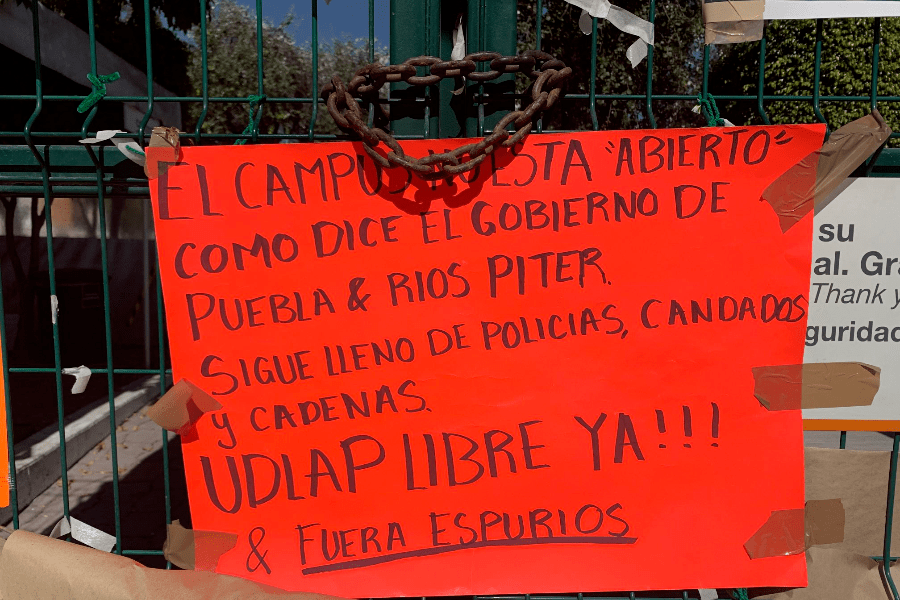 EL CAMPUS NO ESTA "ABIERTO"
COMO DICE EL GOBIERNO DE
PUEBLA & RIOS PITER.
SIGUE LLENO DE POLICIAS, CANDADOS
y CADENAS.
UDLAP LIBRE YA!!!
& FUERA ESPURIOS
su
al. Gra
Thank y
guridad